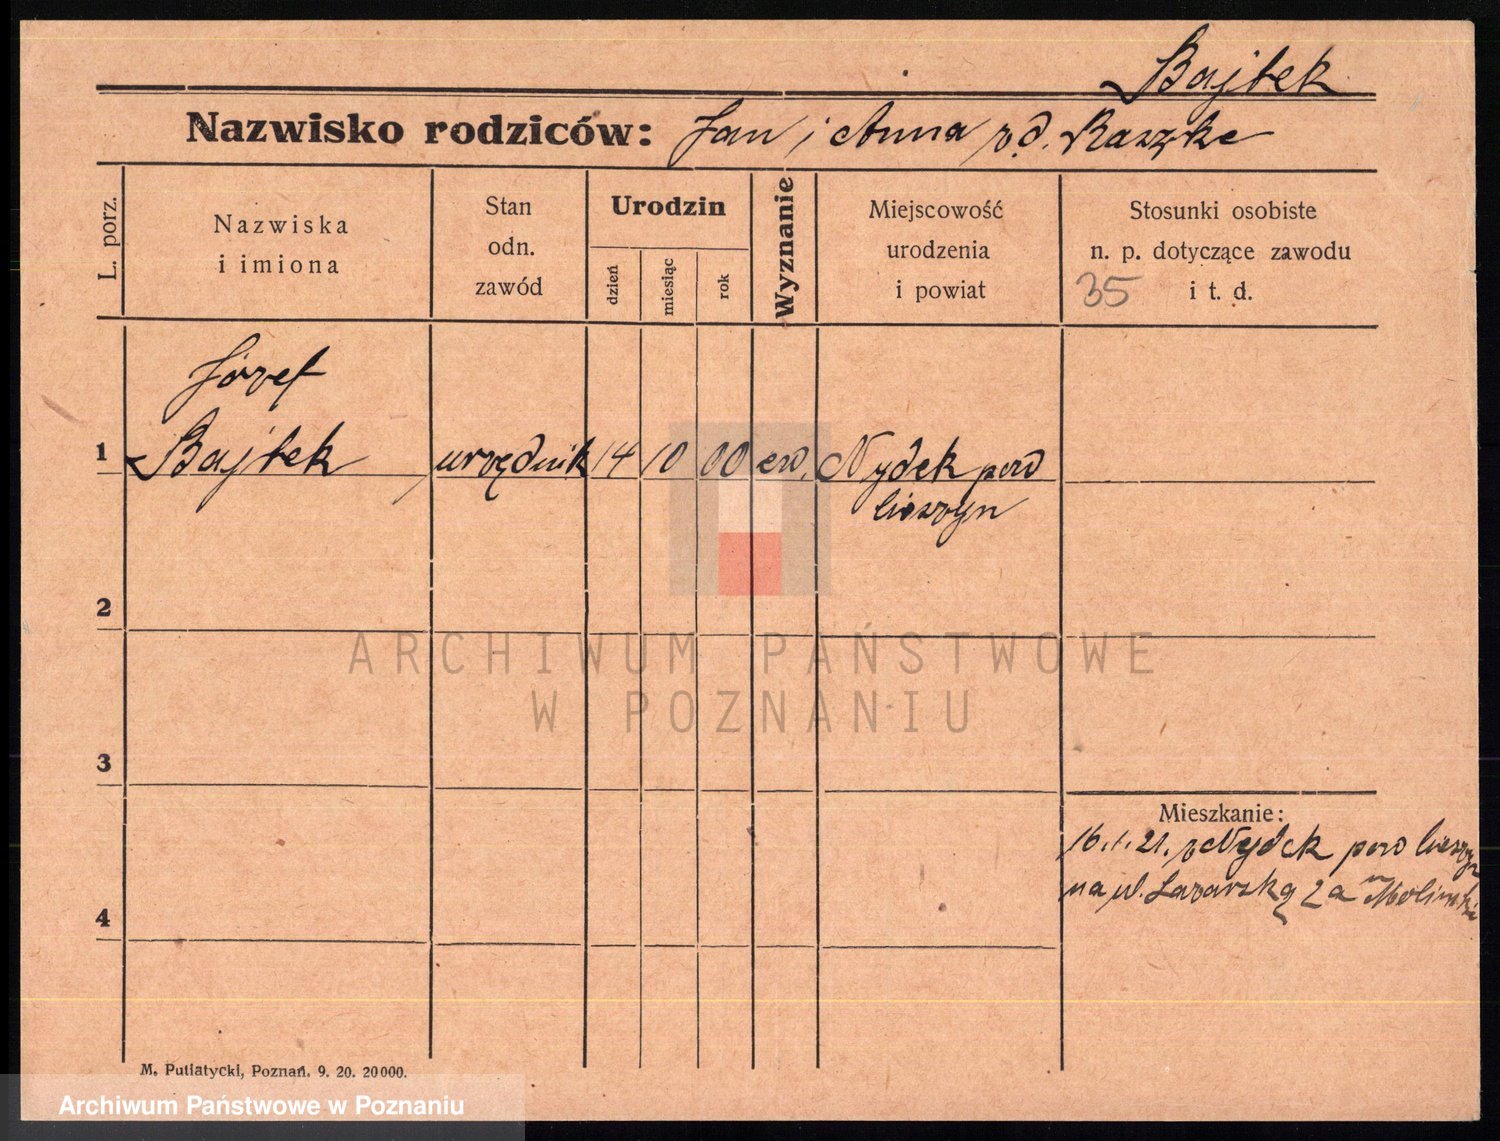 Bajtek
Nazwisko rodziców: Jan i Anna r.d. Raszke
L. porz.
Nazwiska
i imiona
Stan
odn.
zawód
Urodzin
dzień
miesiąc
rok
Wyznanie
Miejscowość
urodzenia
i powiat
Stosunki osobiste
n. p. dotyczące zawodu
35 i t. d.
Józef
1 Bajtek urzędnik 14 10 00 ew. Nydek pow
Cieszyn
2
ARCHIWUM PAŃSTWOWE
W POZNANIU
3
Mieszkanie:
16.1.21. z Nydek pow Cieszyn
na ul. Łazarską 2a
4
M. Putiatycki, Poznań. 9. 20. 20000.
Archiwum Państwowe w Poznaniu